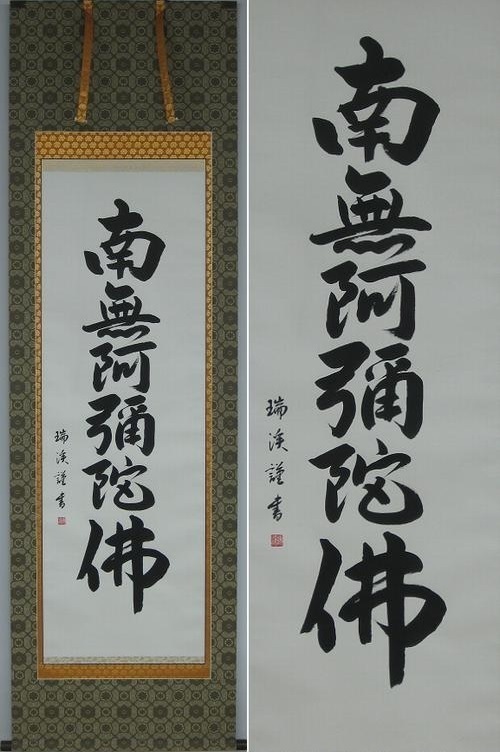 南無阿彌陀佛
瑞渓謹書
南無阿彌陀佛
瑞渓謹書